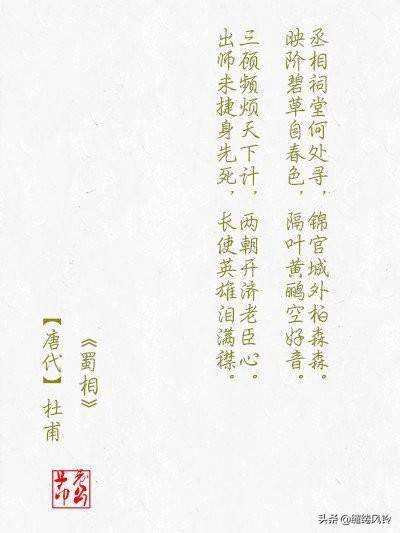 丞相祠堂何处寻，锦官城外柏森森。
映阶碧草自春色，隔叶黄鹂空好音。
三硕频烦天下计，两朝开济老臣心。
出师未捷身先死，长使英雄泪满襟。
《蜀相》
【唐代】杜甫
头条 @缱绻风铃